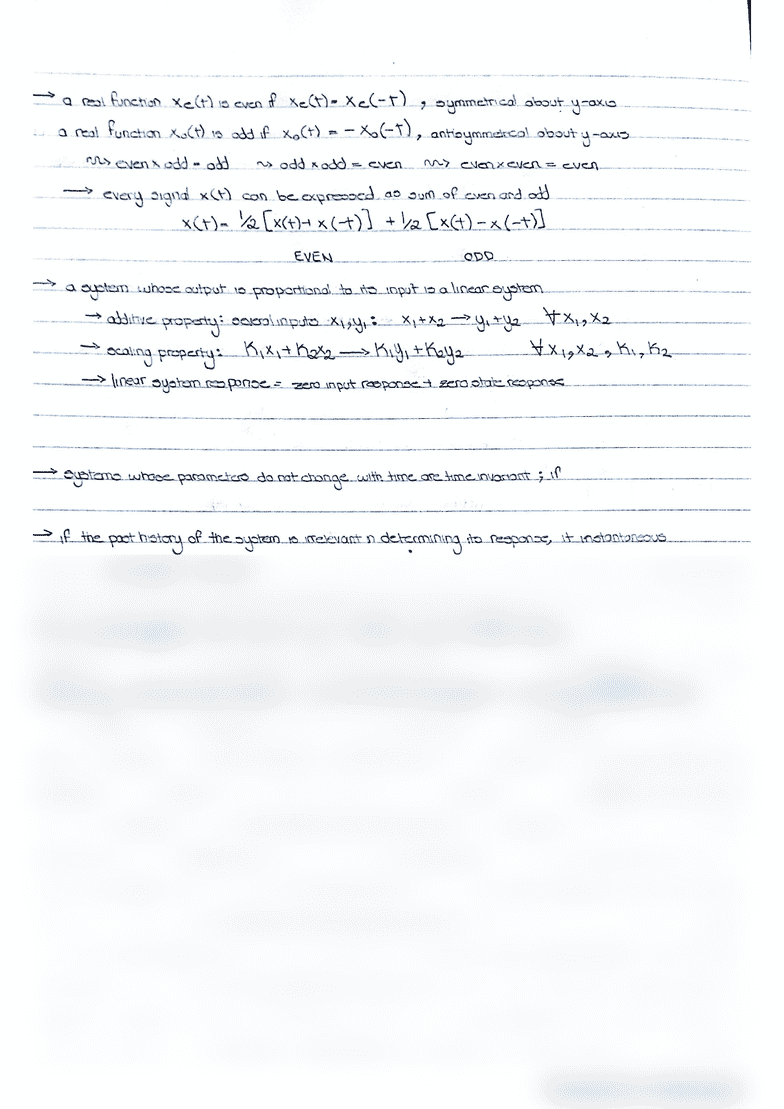 → a real function xe(t) is even if xe(t) = xe(-t) , symmetrical about y-axis
a real function xo(t) is odd if xo(t) = - xo(-t) , antisymmetrical about y-axis
⇝ even × odd = odd ⇝ odd × odd = even ⇝ even × even = even
→ every signal x(t) can be expressed as sum of even and odd
x(t) = 1/2 [x(t) + x(-t)] + 1/2 [x(t) - x(-t)]
EVEN ODD
→ a system whose output is proportional to its input is a linear system
→ additive property: several inputs x₁,y₁ : x₁+x₂ → y₁+y₂ ∀ x₁,x₂
→ scaling property: K₁x₁ + K₂x₂ → K₁y₁ + K₂y₂ ∀ x₁,x₂ , K₁, K₂
→ linear system response = zero input response + zero state response
→ systems whose parameters do not change with time are time invariant ; if
→ if the past history of the system is irrelevant n determining its response, it instantaneous